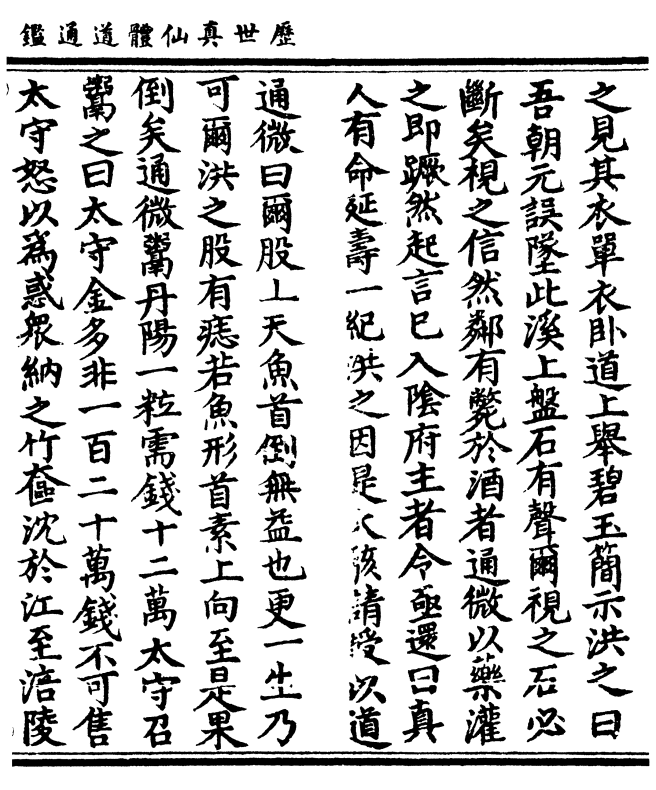 歷世真仙體道通鑑
之見其衣單衣卧道上舉碧玉簡示洪之曰
吾朝元誤墜此溪上盤石有聲爾視之石必
斷矣視之信然鄰有斃於酒者通微以藥灌
之即蹶然起言已入陰府主者令亟還曰真
人有命延壽一紀洪之因是大駭請受以道
通微曰爾股上天魚首倒無益也更一生乃
可爾洪之股有痣若魚形首素上向至是果
倒矣通微鬻丹陽一粒需錢十二萬太守召
鬻之曰太守金多非一百二十萬錢不可售
太守怒以為惑衆納之竹奩沈於江至涪陵